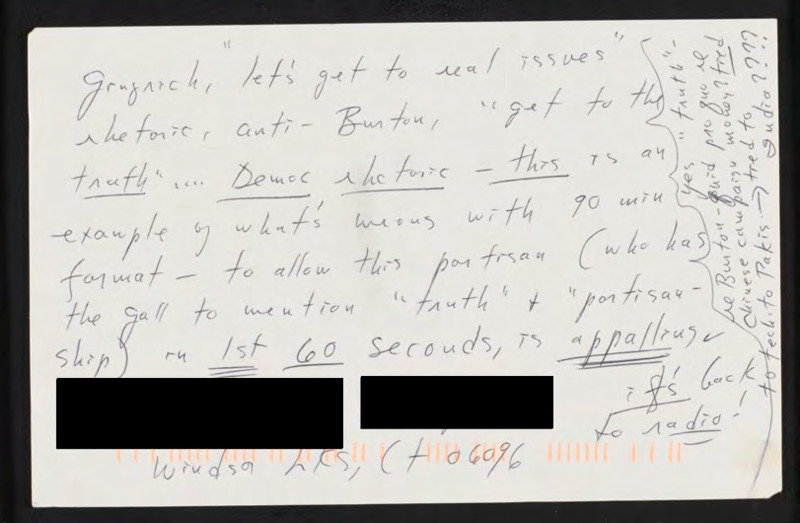 Gingrich, "let's get to real issues"
rhetoric, anti-Burton, "get to the
truth".... Democ rhetoric - this is an
example of what's wrong with 90 min
format - to allow this partisan (who has
the gall to mention "truth" & "partisan-
ship) in 1st 60 seconds, is appalling
it's back
to radio!
Windsor Lks, Ct 06096
yes "truth" -
re Burton - quid pro quo re
Chinese campaign money tied
to tech. to Pakis. → tied to
India????!!